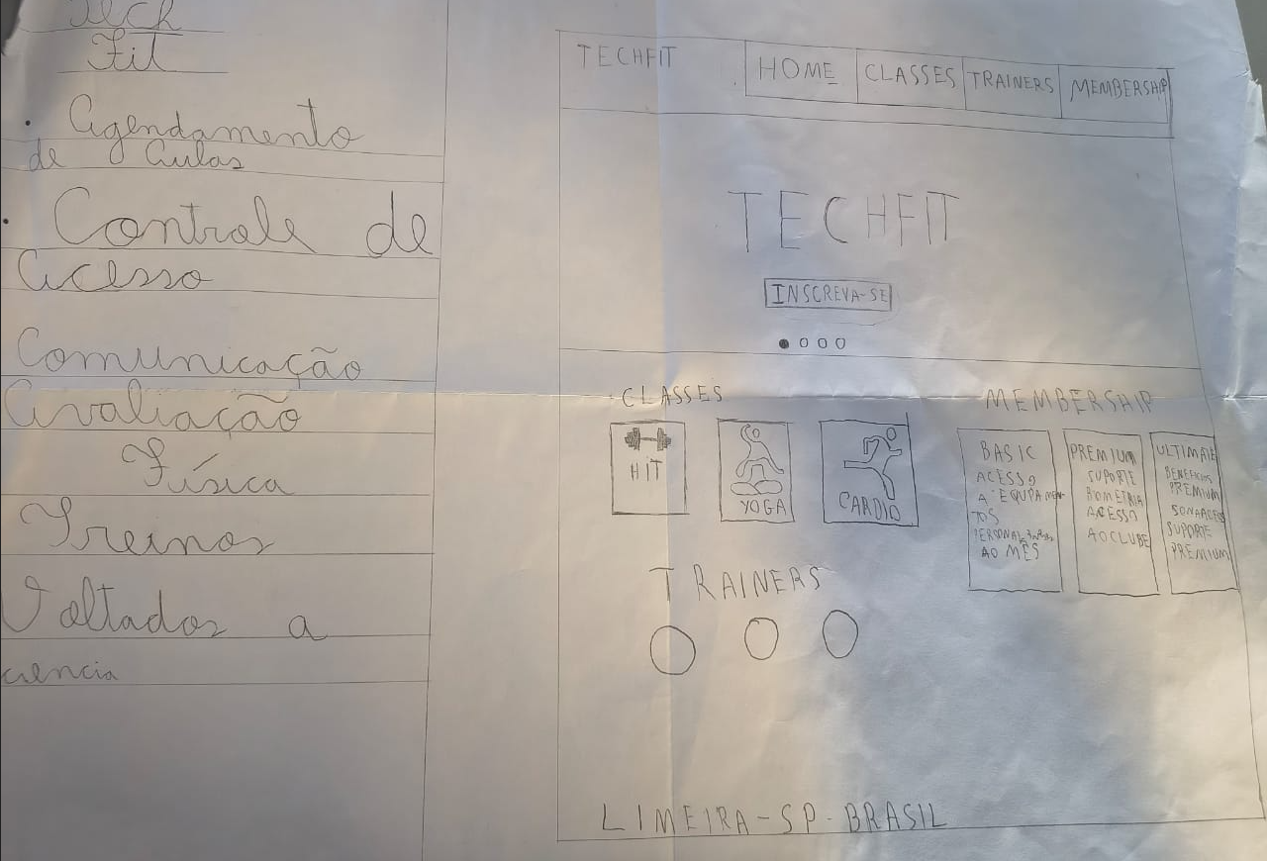 Tech
Fit
• Agendamento
de Aulas
• Controle de
acesso
Comunicação
Avaliação
Física
Treinos
Voltados a
ciencia
TECHFIT
HOME
CLASSES
TRAINERS
MEMBERSHIP
TECHFIT
INSCREVA-SE
CLASSES
HIT
YOGA
CARDIO
MEMBERSHIP
BASIC
ACESSO
A EQUIPAMEN-
TOS
AO MÊS
PREMIUM
SUPORTE
BIOMETRIA
ACESSO
AO CLUBE
ULTIMATE
PREMIUM
SUPORTE
PREMIUM
TRAINERS
LIMEIRA-SP-BRASIL